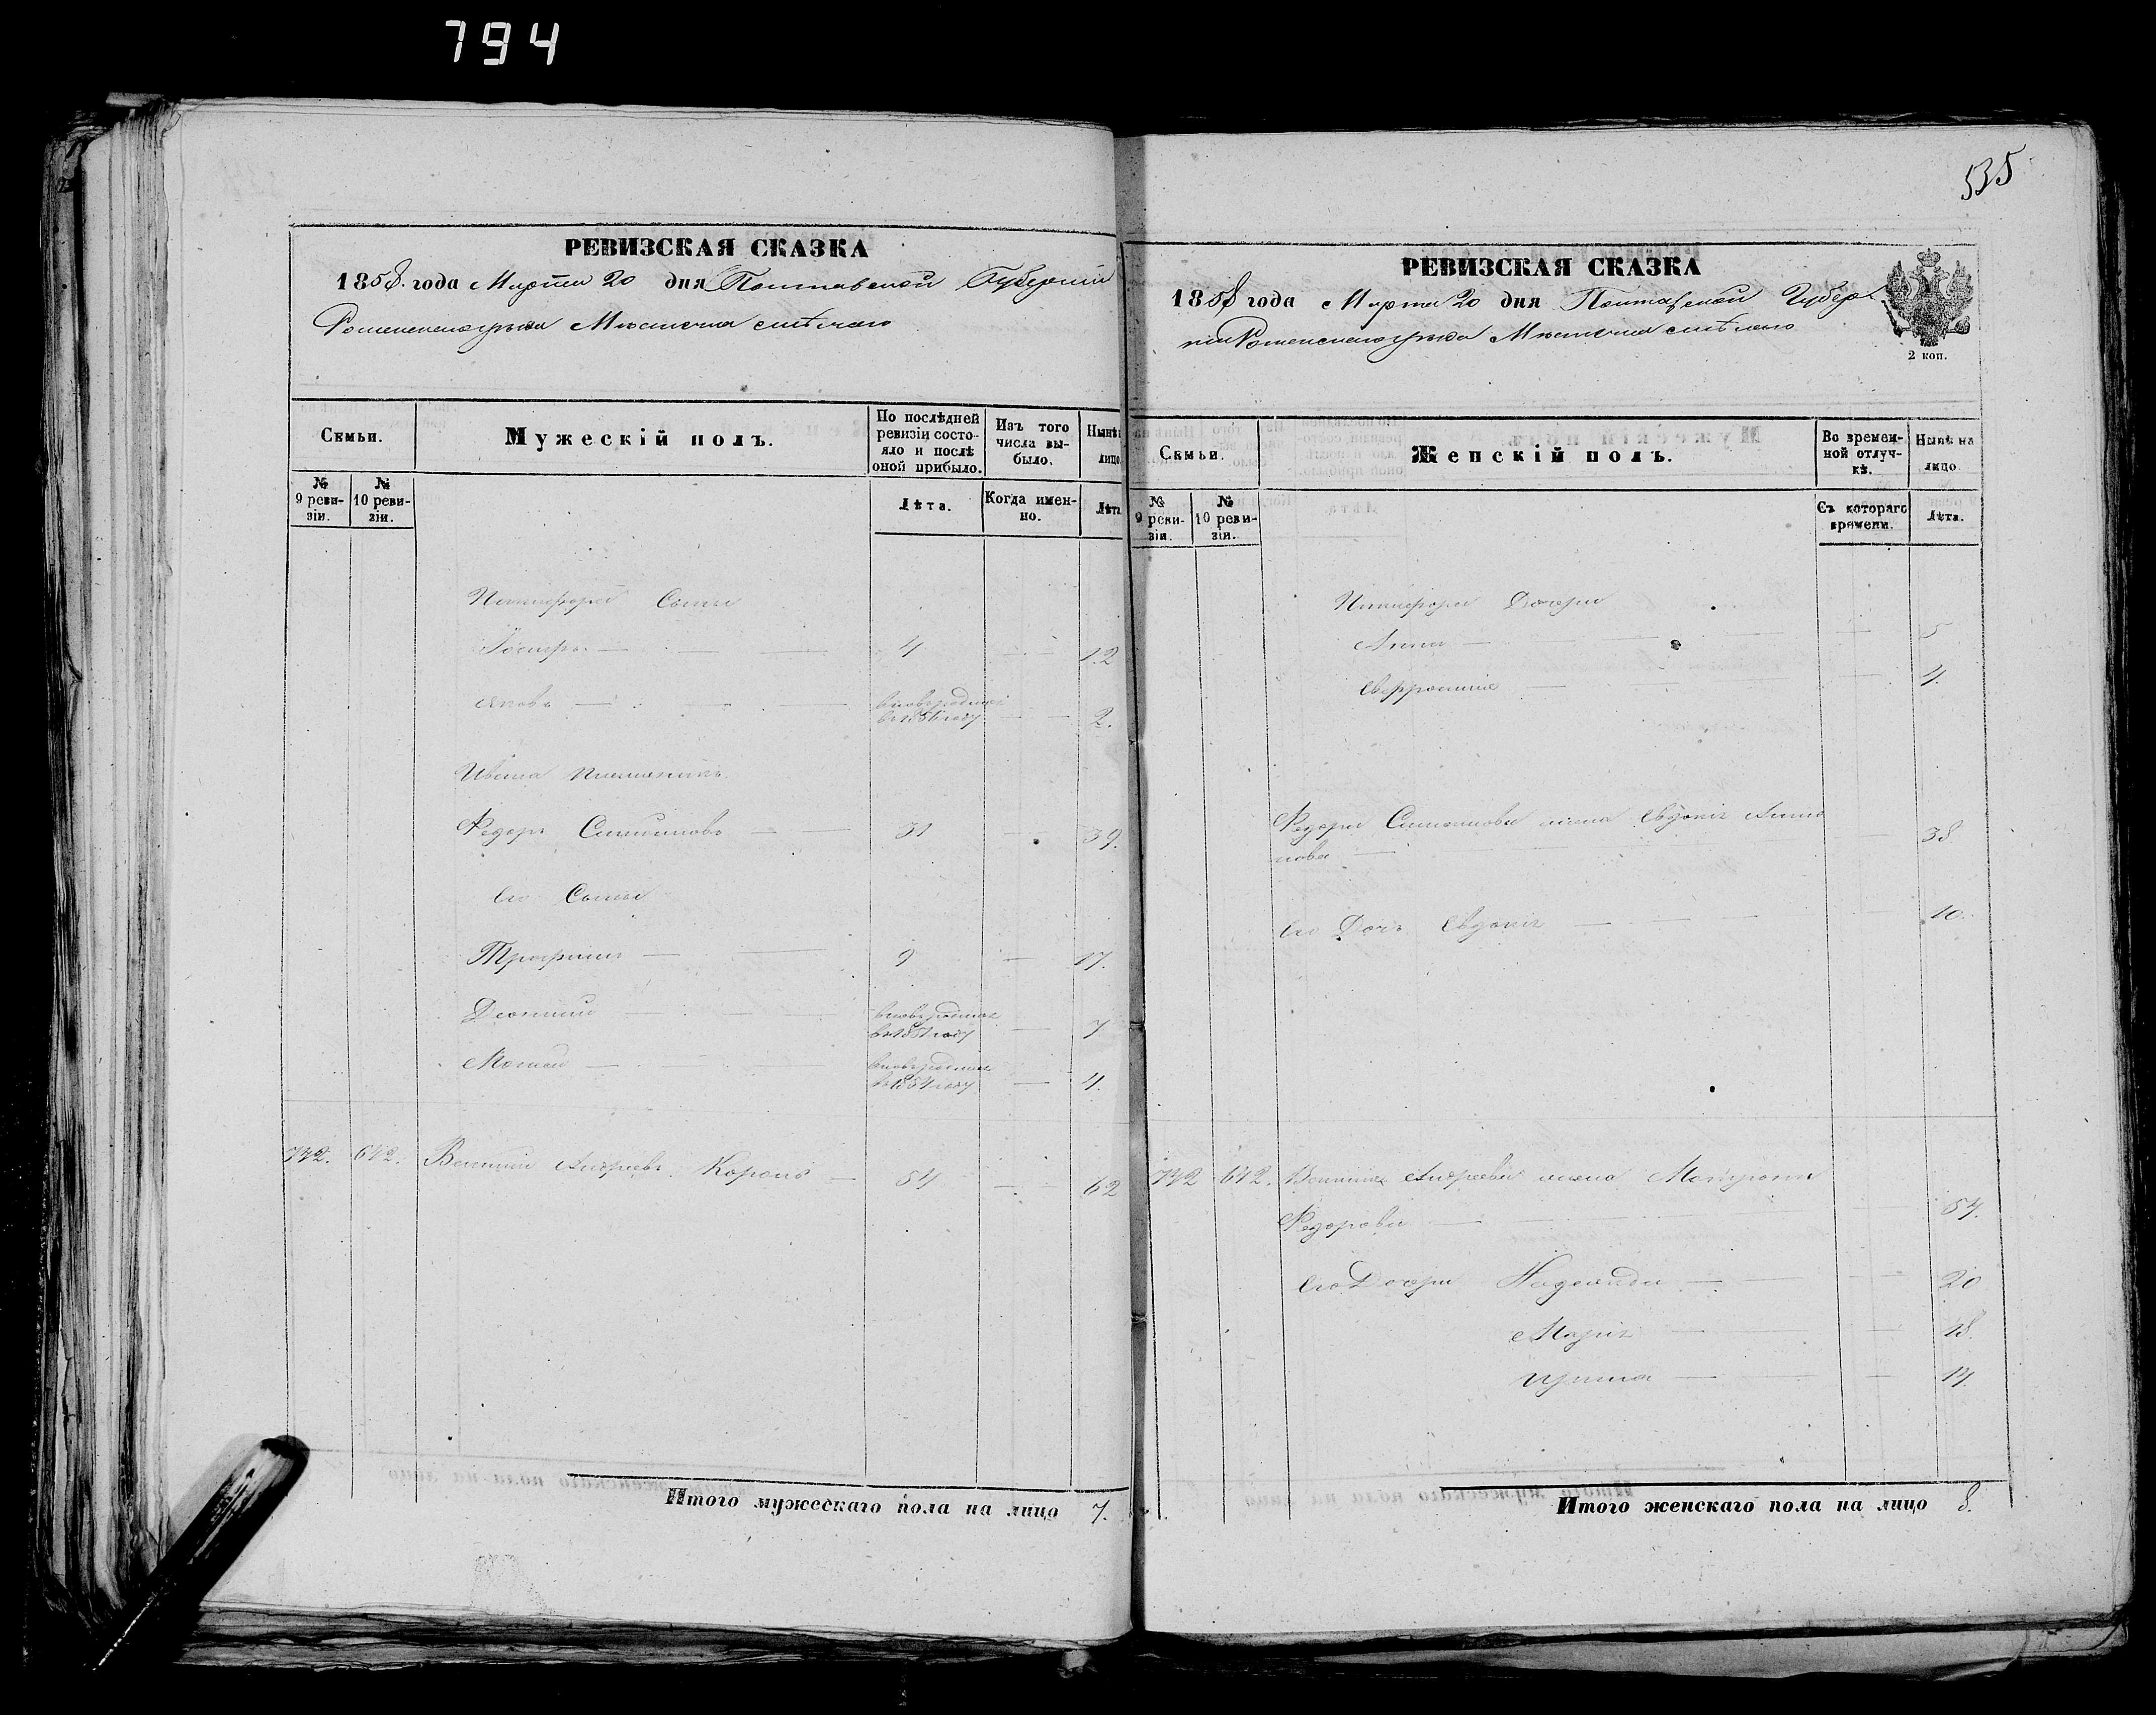 794
535
РЕВИЗСКАЯ СКАЗКА
1858 года Марта 20 дня Полтавской Губерніи
Роменскаго уѣзда Мѣстечка Смѣлаго
Семьи.
Мужескій полъ.
По послѣдней ревизіи состояло и послѣ оной прибыло.
Изъ того числа выбыло.
Нынѣ
лицо
№ 9 ревизіи.
№ 10 ревизіи.
Лѣта.
Когда именно.
Лѣта
Никифора Сыны
Іосифъ 4 12
Яковъ вновьрожден въ 1856 году 2.
Ивана племянникъ
Федоръ 31 39.
Его Сыны
Трофимъ 9 17.
вновьрожден въ 1851 году 7
Мотвей вновьрожден въ 1854 году 4.
742. 642. Василій Андреевъ Король 54 62
Итого мужескаго пола на лицо 7.
РЕВИЗСКАЯ СКАЗКА
1858 года Марта 20 дня Полтавской Губер
ніи Роменскаго уѣзда Мѣстечка Смѣлаго
2 коп.
Семьи.
Женскій полъ.
Во временной отлучкѣ.
Нынѣ на лицо
№ 9 ревизіи.
№ 10 ревизіи.
Съ котораго времени.
Лѣта.
Никифора Дочери
Анна 5
Евфросинія 4.
Федора жена Евдокія
нова 38
Его Дочь Евдокія 10.
742 642. Василія Андреева жена Мотрона
Федорова 54.
Его Дочери Надежда 20
Марія 18.
Ирина 14.
Итого женскаго пола на лицо 8.